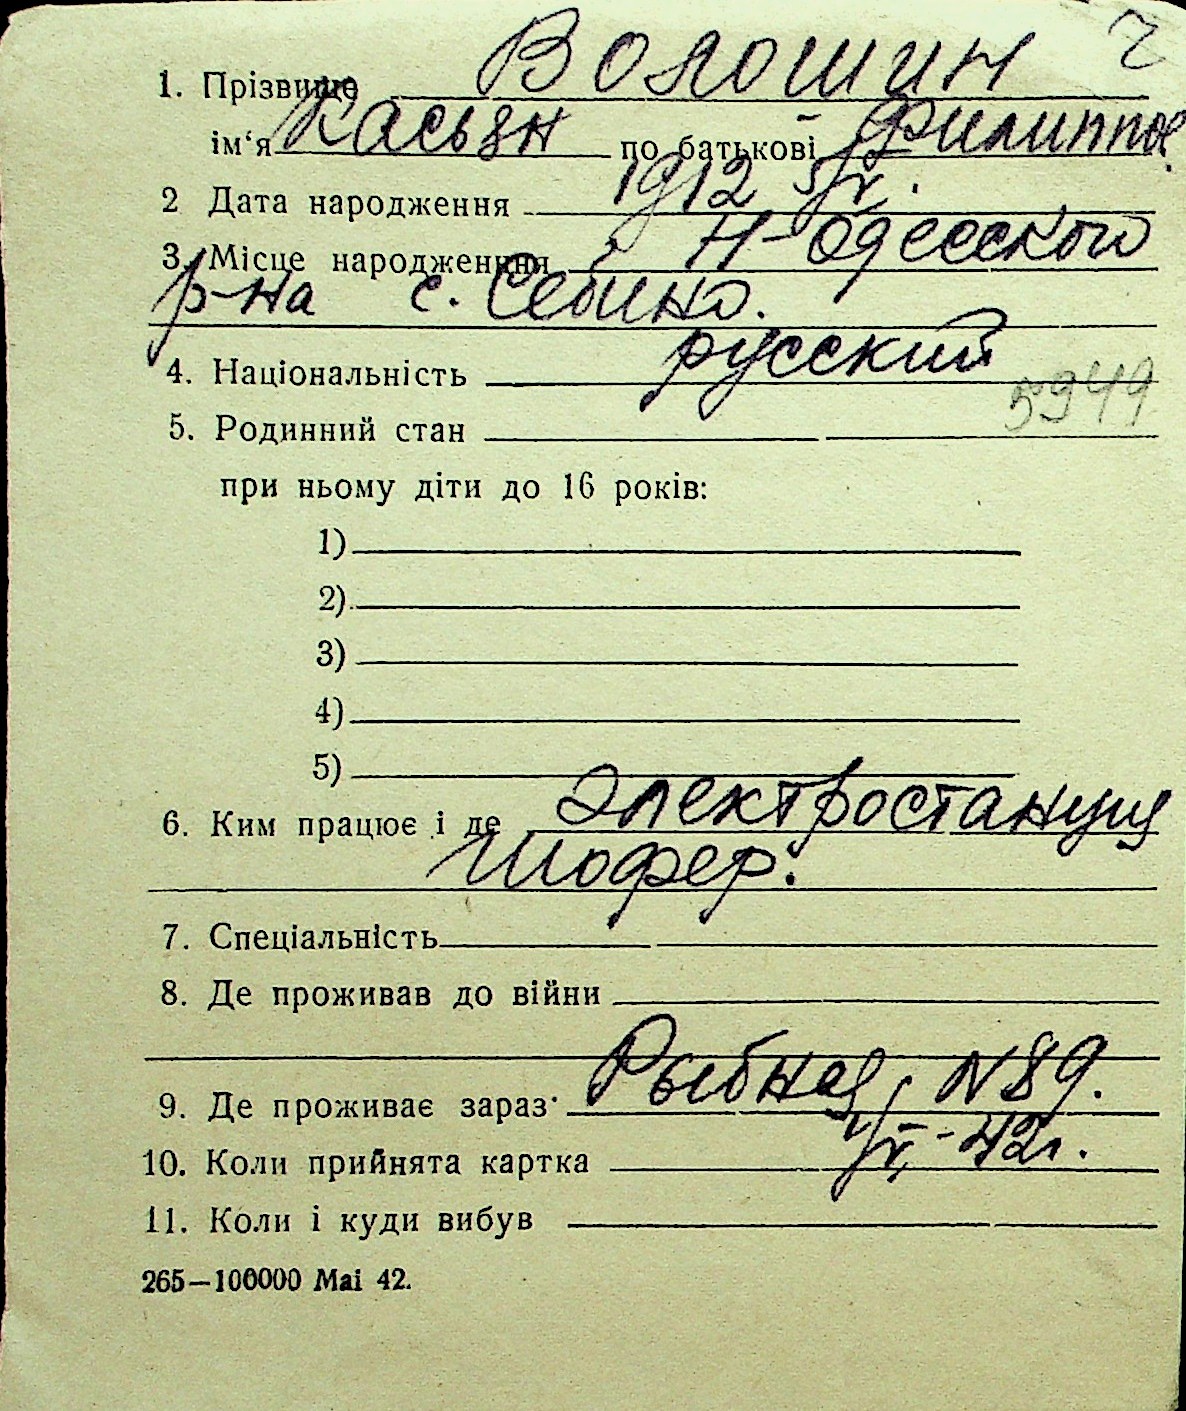 1. Прізвище Волошин
ім‘я Касьян по батькові Филиппов.
2 Дата народження 1912
3. Місце народження Н-Одесского
р-на с. Себино.
4. Національність русский
5949
5. Родинний стан
при ньому діти до 16 років:
1)
2)
3)
4)
5)
6. Ким працює і де Электростанция
Шофер.
7. Спеціальність
8. Де проживав до війни
9. Де проживає зараз Рыбная, N 89.
10. Коли прийнята картка 42г.
11. Коли і куди вибув
265—100000 Mai 42.